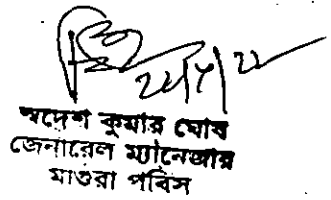 ২২/৮/২২
স্বদেশ কুমার ঘোষ
জেনারেল ম্যানেজার
মাগুরা পবিস